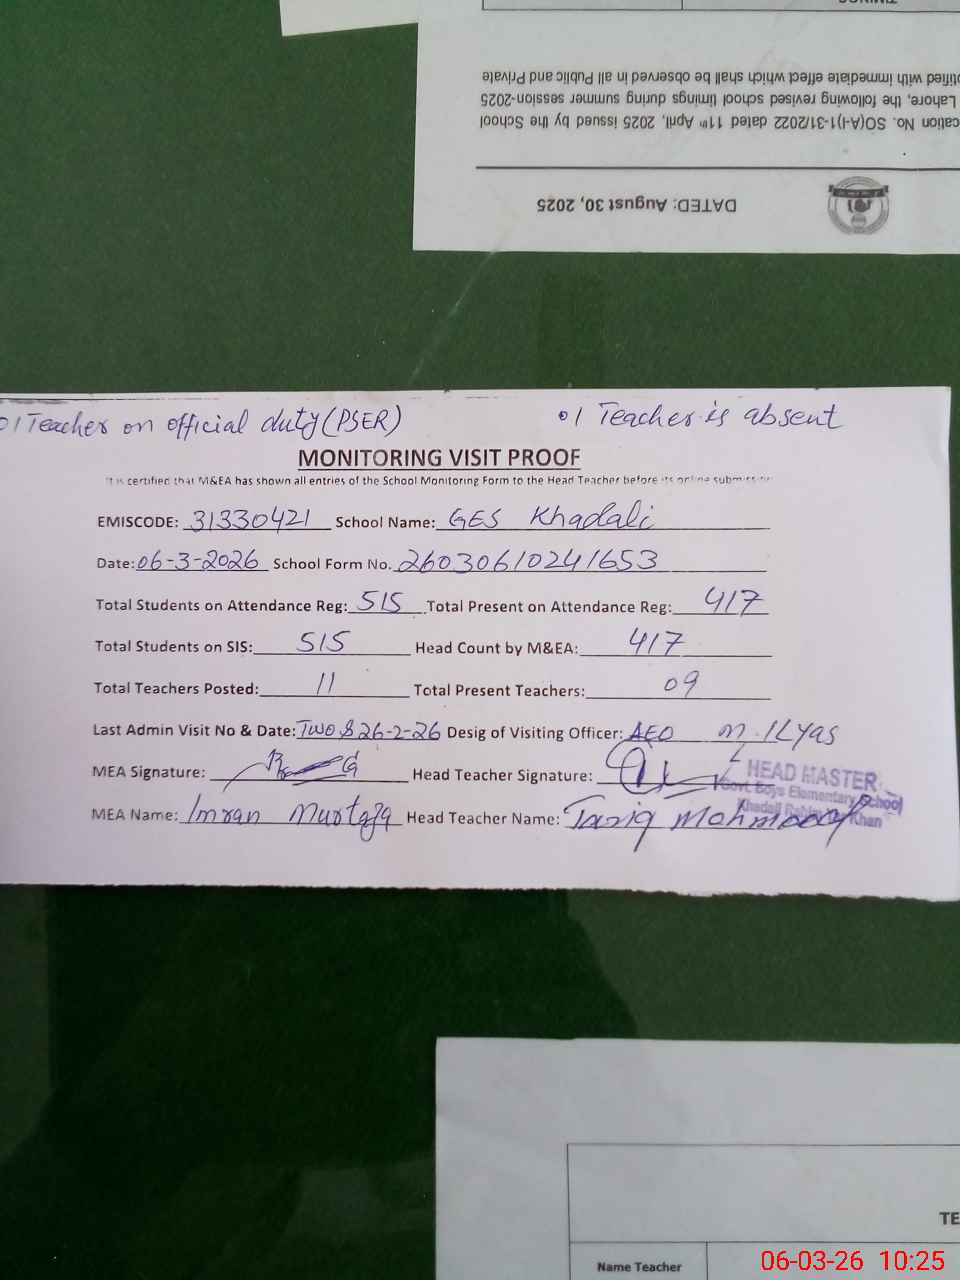 TIMINGS
otified with immediate effect which shall be observed in all Public and Private
Lahore, the following revised school timings during summer session-2025
cation No. SO(A-I)1-31/2022 dated 11th April, 2025 issued by the School
DATED: August 30, 2025
01 Teacher on official duty (PSER) 01 Teacher is absent
MONITORING VISIT PROOF
It is certified that M&EA has shown all entries of the School Monitoring Form to the Head Teacher before its online submission
EMISCODE: 31330421 School Name: GES Khadali
Date: 06-3-2026 School Form No. 26030610241653
Total Students on Attendance Reg: 515 Total Present on Attendance Reg: 417
Total Students on SIS: 515 Head Count by M&EA: 417
Total Teachers Posted: 11 Total Present Teachers: 09
Last Admin Visit No & Date: Two & 26-2-26 Desig of Visiting Officer: AEO M. ILyas
MEA Signature: Head Teacher Signature:
HEAD MASTER
Govt. Boys Elementary School
Khadali Khan
MEA Name: Imran Murtaza Head Teacher Name: Tariq Mahmood
TE
Name Teacher
06-03-26 10:25